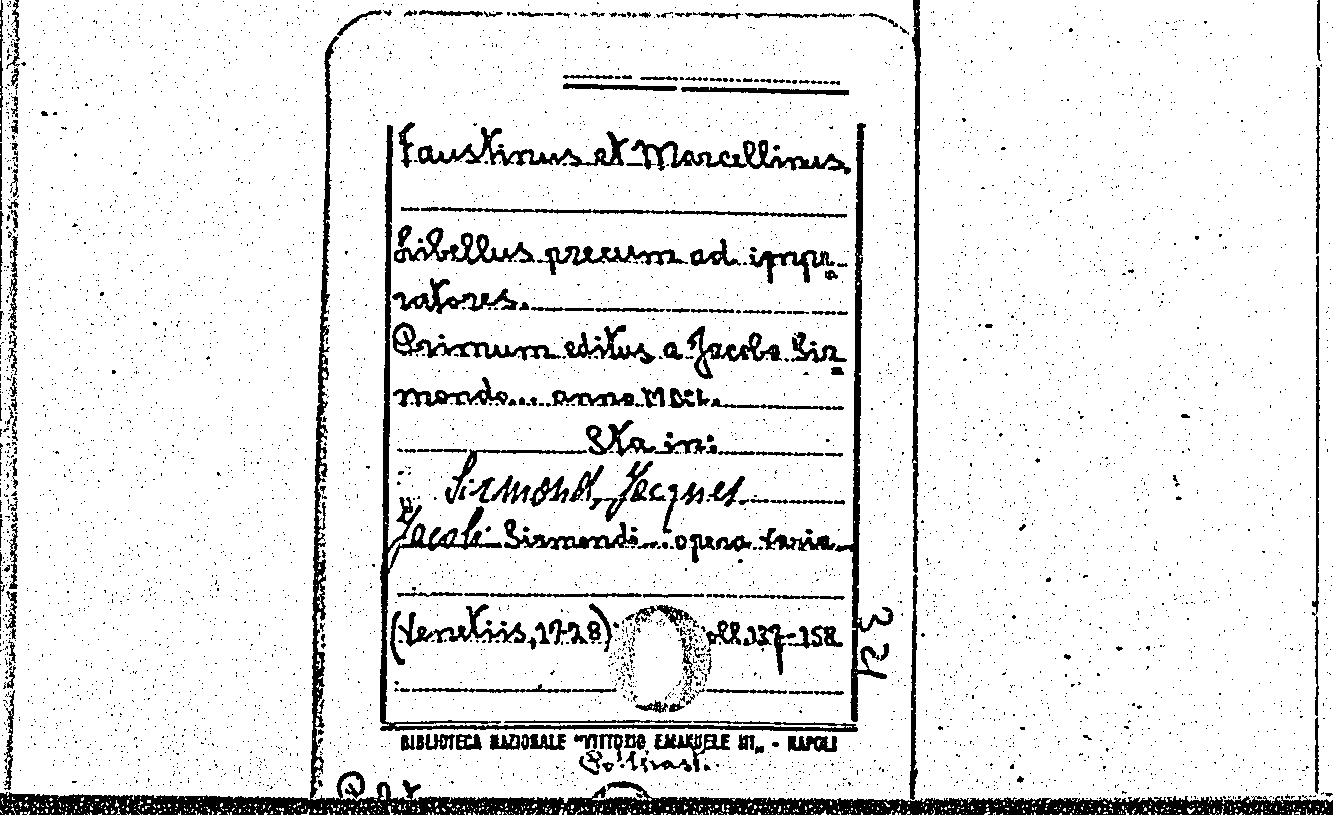 Faustinus et Marcellinus.
Libellus precum ad impe=
ratores.
Primum editus a Jacobo Sir=
mondo... anno MDCL.
Sta in:
Sirmond, Jacques
Jacobi Sirmondi... opera varia...
(Venetiis, 1728) coll. 137-158
BIBLIOTECA NAZIONALE "VITTORIO EMANUELE III„ - NAPOLI